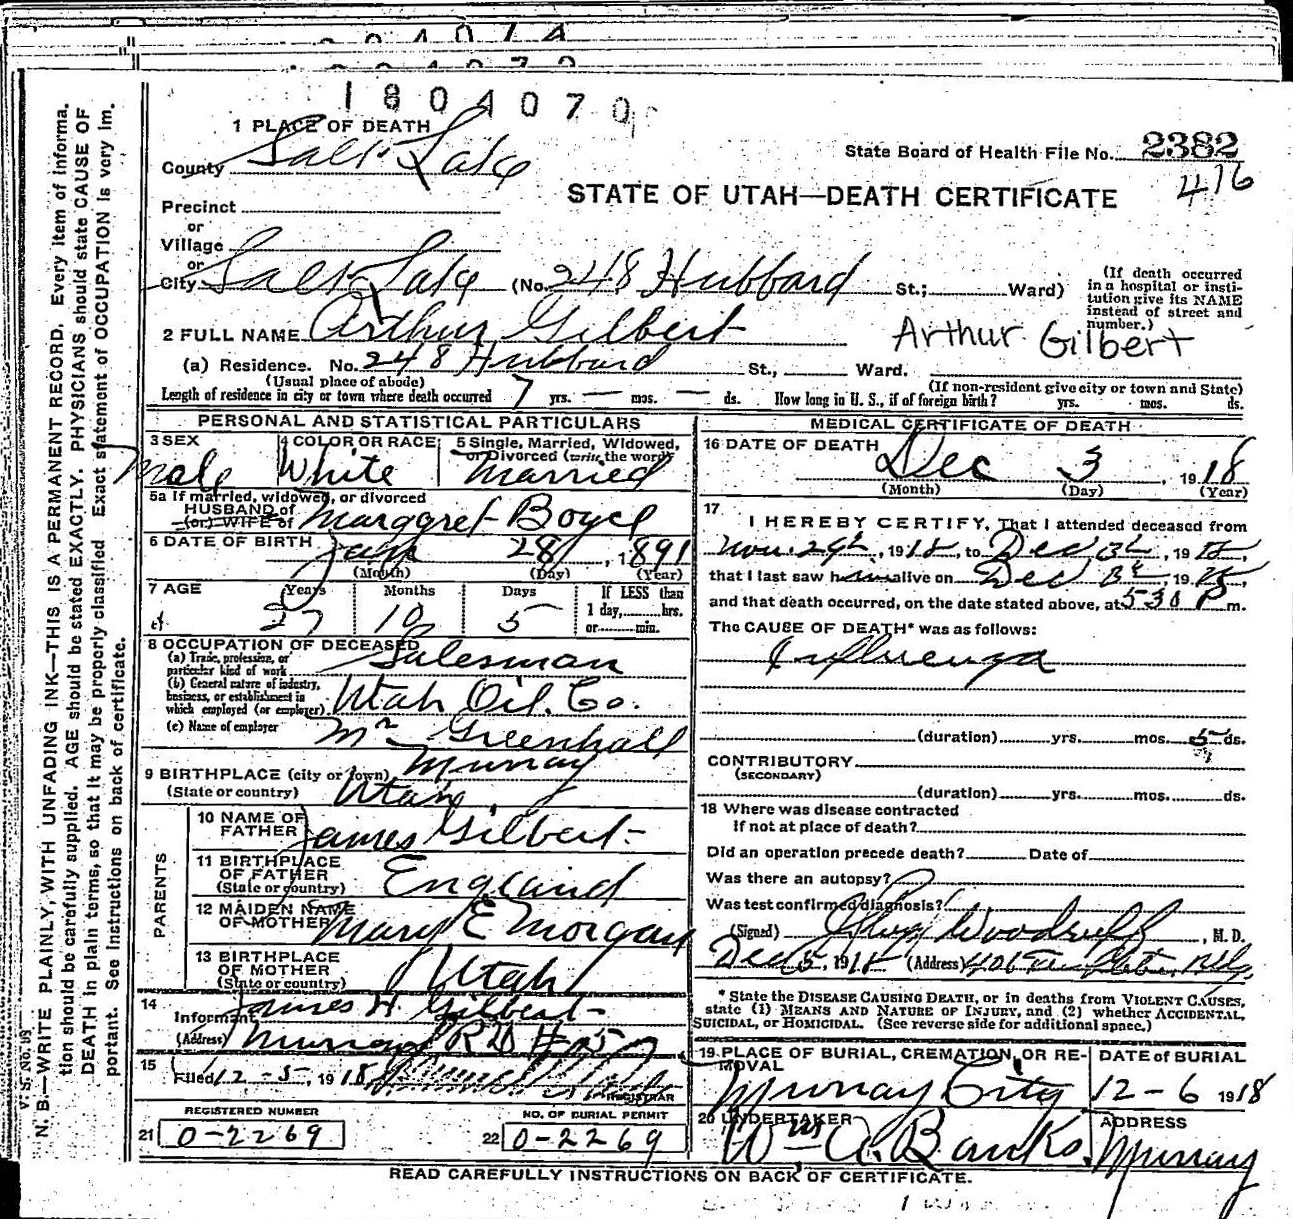 1804070
1 PLACE OF DEATH
County Salt Lake
State Board of Health File No. 2382
416
STATE OF UTAH—DEATH CERTIFICATE
Precinct
or
Village
or
City Salt Lake (No. 248 Hubbard St.; Ward)
(If death occurred in a hospital or insti-
tution give its NAME
instead of street and
number.)
2 FULL NAME Arthur Gilbert
Arthur Gilbert
(a) Residence. No. 248 Hubbard St., Ward.
(Usual place of abode) (If non-resident give city or town and State)
Length of residence in city or town where death occurred 7 yrs. — mos. — ds. How long in U. S., if of foreign birth? yrs. mos. ds.
PERSONAL AND STATISTICAL PARTICULARS
3 SEX Male
4 COLOR OR RACE White
5 Single, Married, Widowed, or Divorced (write the word) Married
5a If married, widowed, or divorced
HUSBAND of
(or) WIFE of Marggret Boyce
6 DATE OF BIRTH Jan 28, 1891
(Month) (Day) (Year)
7 AGE Years Months Days If LESS than
27 10 5 1 day, hrs.
or min.
8 OCCUPATION OF DECEASED
(a) Trade, profession, or particular kind of work Salesman
(b) General nature of industry, business, or establishment in which employed (or employer) Utah Oil. Co.
(c) Name of employer Mr Greenhall
9 BIRTHPLACE (city or town) Murray
(State or country) Utah
PARENTS
10 NAME OF FATHER James Gilbert
11 BIRTHPLACE OF FATHER (State or country) England
12 MAIDEN NAME OF MOTHER Mary E Morgan
13 BIRTHPLACE OF MOTHER (State or country) Utah
14 Informant James H Gilbert
(Address) Murray RD # 5
15 Filed 12-5, 1918 REGISTRAR
REGISTERED NUMBER
21 0-2269
NO. OF BURIAL PERMIT
22 0-2269
MEDICAL CERTIFICATE OF DEATH
16 DATE OF DEATH Dec 3, 1918
(Month) (Day) (Year)
17 I HEREBY CERTIFY, That I attended deceased from
Nov. 29th, 1918, to Dec 3d, 1918,
that I last saw him alive on Dec 3d, 1918,
and that death occurred, on the date stated above, at 530 P m.
The CAUSE OF DEATH* was as follows:
Influenza
(duration) yrs. mos. 5 ds.
CONTRIBUTORY
(SECONDARY)
(duration) yrs. mos. ds.
18 Where was disease contracted
If not at place of death?
Did an operation precede death? Date of
Was there an autopsy?
Was test confirmed diagnosis?
(Signed) Woodruff, M. D.
Dec 5, 1918 (Address) 401 Templeton Bldg.
* State the DISEASE CAUSING DEATH, or in deaths from VIOLENT CAUSES,
state (1) MEANS AND NATURE OF INJURY, and (2) whether ACCIDENTAL,
SUICIDAL, or HOMICIDAL. (See reverse side for additional space.)
19 PLACE OF BURIAL, CREMATION, OR RE-
MOVAL Murray City
DATE of BURIAL
12-6 1918
20 UNDERTAKER Wm A. Banks.
ADDRESS Murray
READ CAREFULLY INSTRUCTIONS ON BACK OF CERTIFICATE.
V. S. No. 95
N. B.—WRITE PLAINLY, WITH UNFADING INK—THIS IS A PERMANENT RECORD. Every item of informa-
tion should be carefully supplied. AGE should be stated EXACTLY. PHYSICIANS should state CAUSE OF
DEATH in plain terms, so that it may be properly classified. Exact statement of OCCUPATION is very im-
portant. See Instructions on back of certificate.